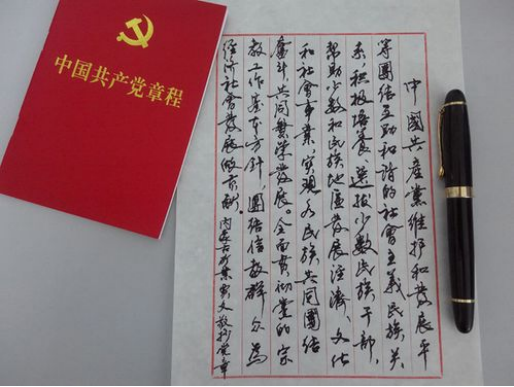 中国共产党章程
中國共產黨維护和發展平
等團结互助和谐的社會主義民族关
系,积极培養、選拔少數民族干部,
帮助少数和民族地區發展经濟、文化
和社會事業,實現各民族共同團结
奮斗、共同繁榮發展。全面貫彻黨的宗
教工作基本方針,團结信教群众為
经济社會發展做贡献。内蒙古 文敬抄党章